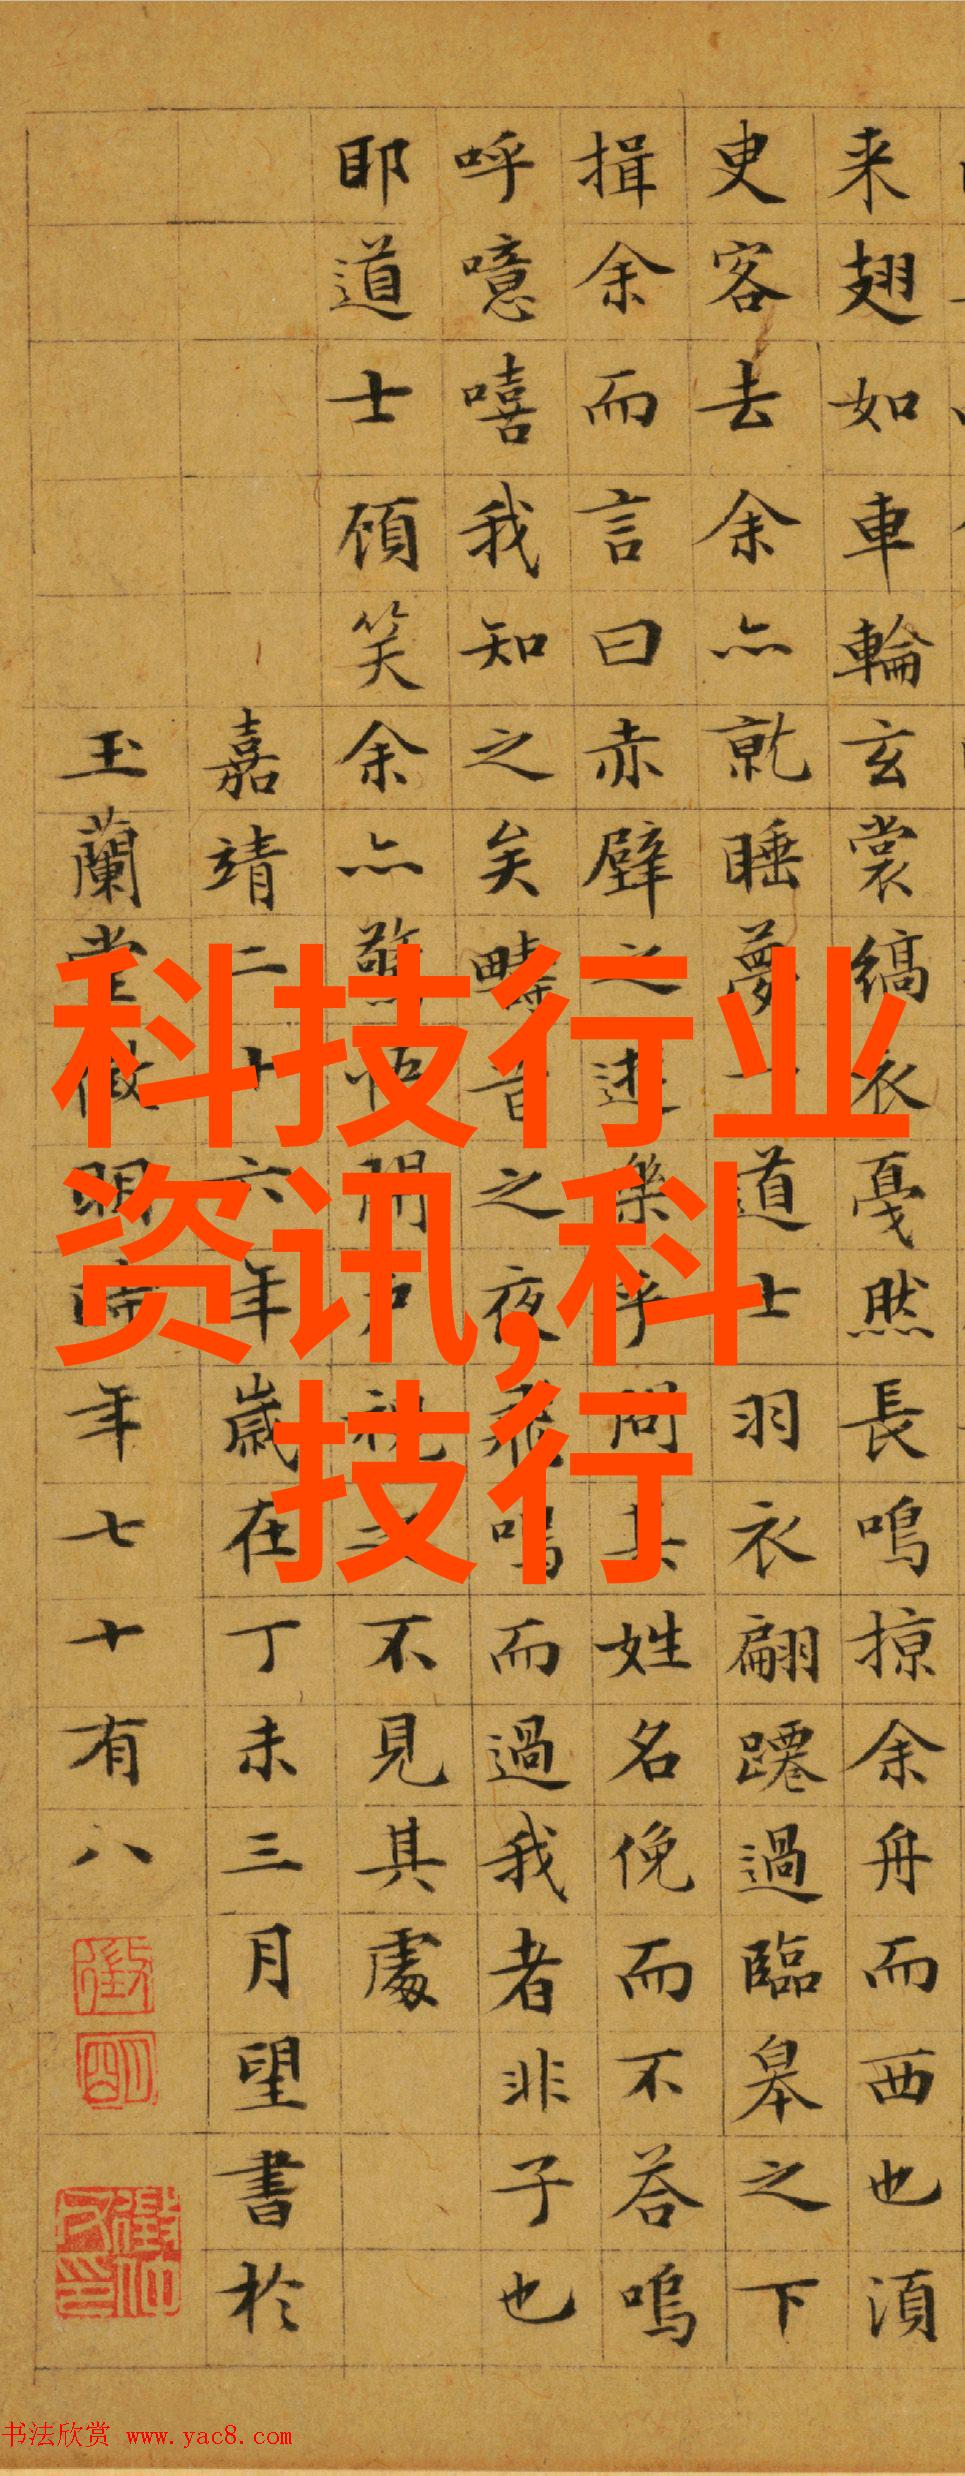 来翅如車輪玄裳縞衣戛然長鳴掠余舟而西也湏
叟客去余亦就睡夢一道士羽衣翩躚過臨皋之下
揖余而言曰赤壁之遊樂乎問其姓名俛而不荅嗚
呼噫嘻我知之矣疇昔之夜飛鳴而過我者非子也
耶道士頋笑余亦驚悟開戶視之不見其處
嘉靖二十六年歲在丁未三月望書於
玉蘭堂徵明時年七十有八
徵
明
科技行业
资讯,科
技行
书法欣赏 www.yac8.com